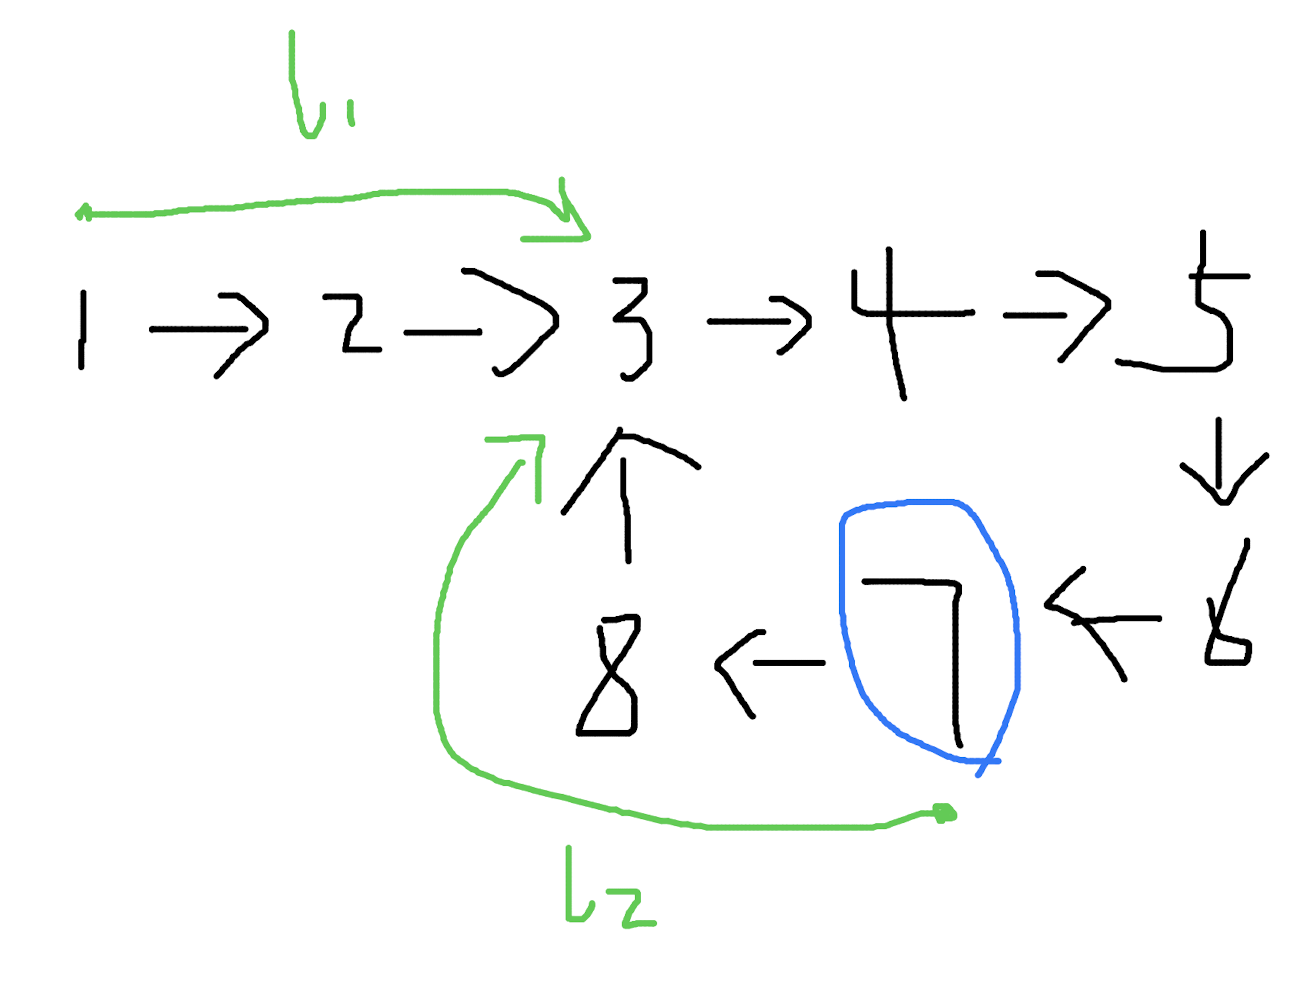 l1
1 → 2 → 3 → 4 → 5
↓
8 ← 7 ← 6
↑
l2